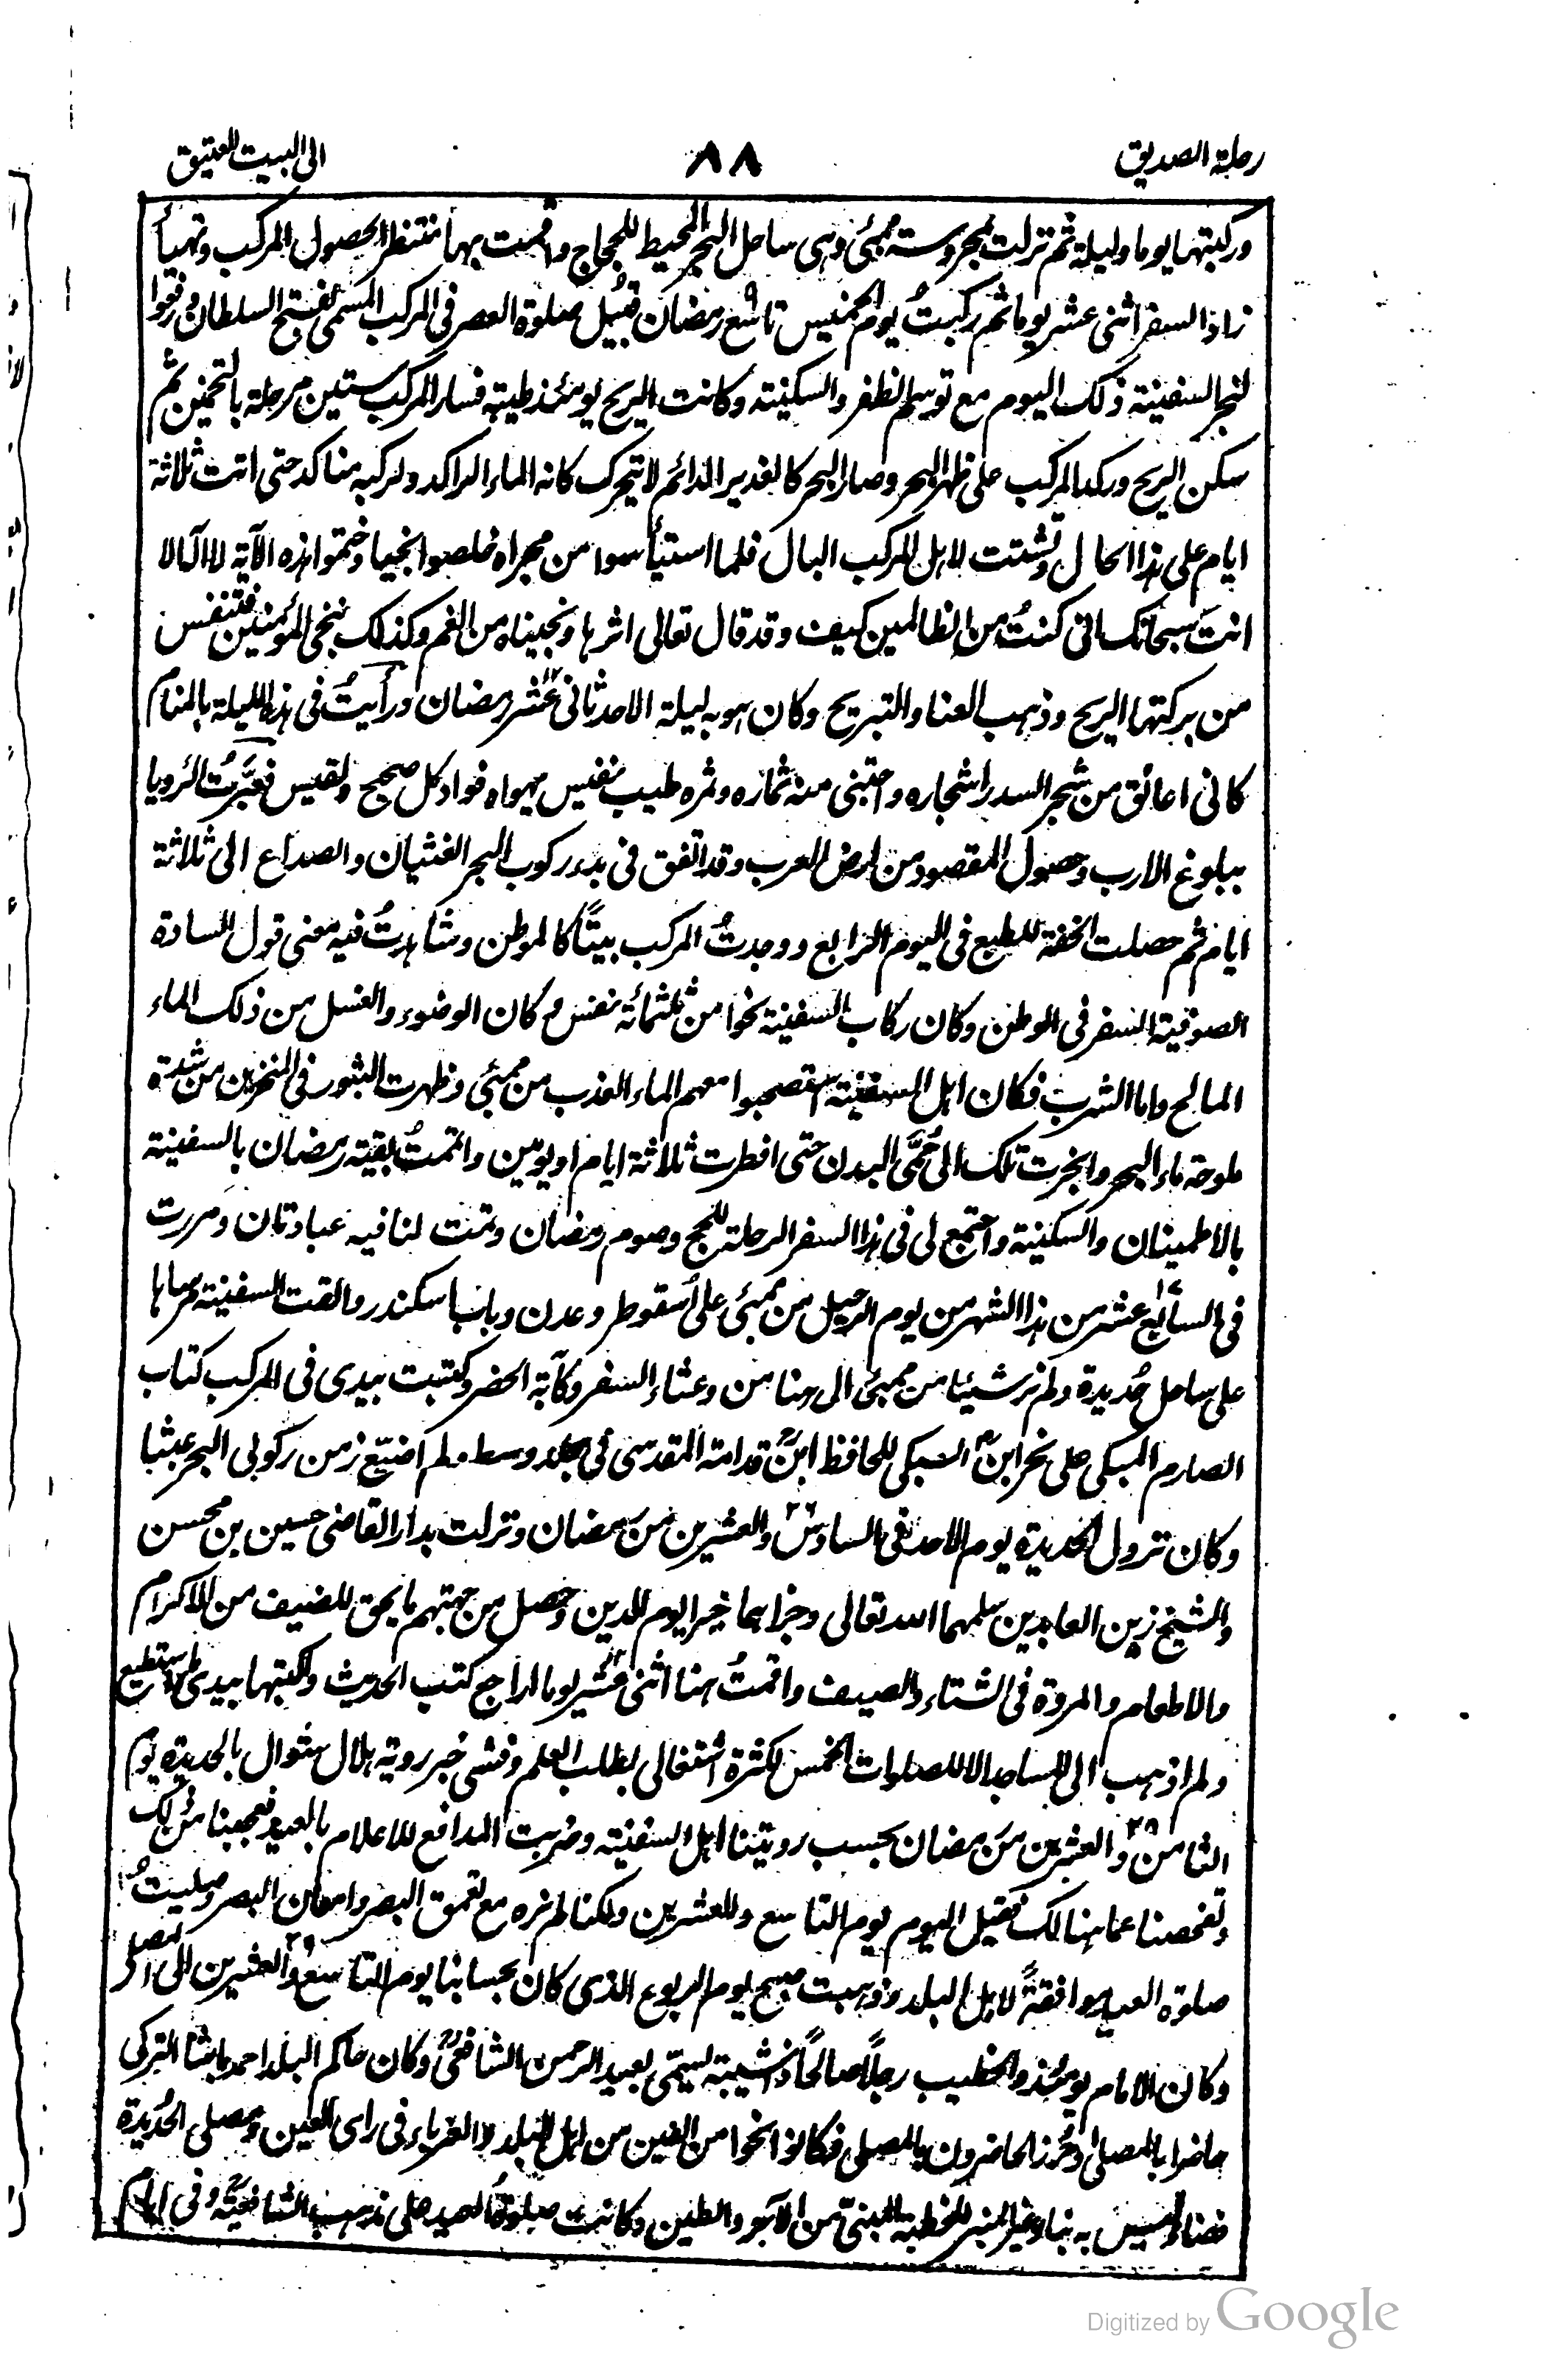 رحلة الصديق ٨٨ الى البيت العتيق
وركبتها يوما وليلة ثم نزلت بمحروسة ممبئ وهى ساحل البحر المحيط للحجاج واقمت بها منتظرا لحصول المركب وتهيأ
زاد السفر اثنى عشر يوما ثم ركبتُ يوم الخميس تاسع ٩ رمضان قبيل صلوة العصر فى المركب المسمى بفتح السلطان ورفعوا
لنجر السفينة ذلك اليوم مع توسم الظفر والسكينة وكانت الريح يومئذ طيبة فسار المركب ستين مرحلة بالتخمين ثم
سكن الريح وركد المركب على ظهر البحر وصار البحر كالغدير الدائم لا تيحرك كانه الماء الراكد ولركبه مناكد حتى اتت ثلاثة
ايام على هذا الحال وتشتت لاهل المركب البال فلما استيأسوا من مجراه خلصوا نجيا وختموا هذه الآية لا اله الا
انتَ سبحانك انى كنتُ من الظالمين كيف وقد قال تعالى اثرها ونجيناه من الغم وكذلك ننجى المؤمنين فتنفس
من بركتها الريح وذهب العنا والتبريح وكان هبوبه ليلة الاحد ثانى عشر ١٢ رمضان ورأيتُ فى هذه الليلة بالمنام
كانى اعانق من شجر السدر اشجاره واجتنى منه ثماره وثمره طيب نفيس يهواه فواد كل صحيح ولقيس فعَبَّرتُ الرويا
ببلوغ الارب وحصول المقصود من ارض العرب وقد اتفق فى بدء ركوب البحر الغثيان والصداع الى ثلاثة
ايام ثم حصلت الخفة للطبع فى اليوم الرابع ووجدتُ المركب بيتًا كالموطن وشاهدتُ فيه معنى قول السادة
الصوفية السفر فى الوطن وكان ركاب السفينة نحوا من ثلثمائة نفس وكان الوضوء والغسل من ذلك الماء
المالح واما الشرب فكان اهل السفينة استصحبوا معهم الماء العذب من ممبئ وظهرت البثور فى المنخرين من شدة
ملوحة ماء البحر وانجرت تلك الى حُمَّى البدن حتى افطرت ثلاثة ايام او يومين واتممتُ بقية رمضان بالسفينة
بالاطمينان والسكينة واجتمع لى فى هذا السفر الرحلة للحج وصوم رمضان وتمت لنا فيه عبادتان ومررت
فى السابع عشر ١٧ من هذا الشهر من يوم الرحيل من ممبئ على سقوطر وعدن وباب اسكندر والقت السفينة مرساها
على ساحل حُديدة ولم نر شيئا من ممبئ الى هنا من وعثاء السفر وكآبة الحضر وكتبت بيدى فى المركب كتاب
الصارم المبكى على نحر ابن السبكى للحافظ ابن قدامة المقدسى فى جلد وسط ولم اضيّع زمن ركوبى البحر عبثا
وكان نزول الحديدة يوم الاحد فى السادس ٢٦ والعشرين من رمضان ونزلت بدار القاضى حسين بن محسن
والشيخ زين العابدين سلمهما الله تعالى وجزاهما خيرا يوم الدين وحصل من جهتهم ما يحق للضيف من الاكرام
والاطعام والمروة فى الشتاء والصيف واقمتُ هنا اثنى عشر ١٢ يوما اراجع كتب الحديث واكتبها بيدى ما استطيع
ولم اذهب الى المساجد الا للصلوات الخمس لكثرة اشتغالى بطلب العلم وفشى خبر روية هلال شوال بالحديدة يوم
الثامن ٢٨ والعشرين من رمضان بحسب رويتنا اهل السفينة وضربت المدافع للاعلام بالعيد فعجبنا من ذلك
وتفحصنا عما هنالك فقيل اليوم يوم التاسع والعشرين ولكنا لم نره مع تعمق البصر وامعان البصر وصليتُ
صلوة العيد موافقةً لاهل البلد وذهبت صبح يوم الربوع الذى كان بحسابنا يوم التاسع ٢٩ والعشرين الى المصلى
وكان الامام يومئذ والخطيب رجلًا صالحًا ذا شيبة يسمّى بعبد الرحمن الشافعى وكان حاكم البلد احمد باشا التركى
حاضرا بالمصلى وحُرز الحاضرون بالمصلى فكانوا نحوا من الفين من اهل البلد والغرباء فى راى العين ومصلى الحُدَيدة
فضاء ليس به بناء غير المنبر للخطبة المبنىّ من الآجر والطين وكانت صلوة العيد على مذهب الشافعية وفى ايام
Digitized by Google